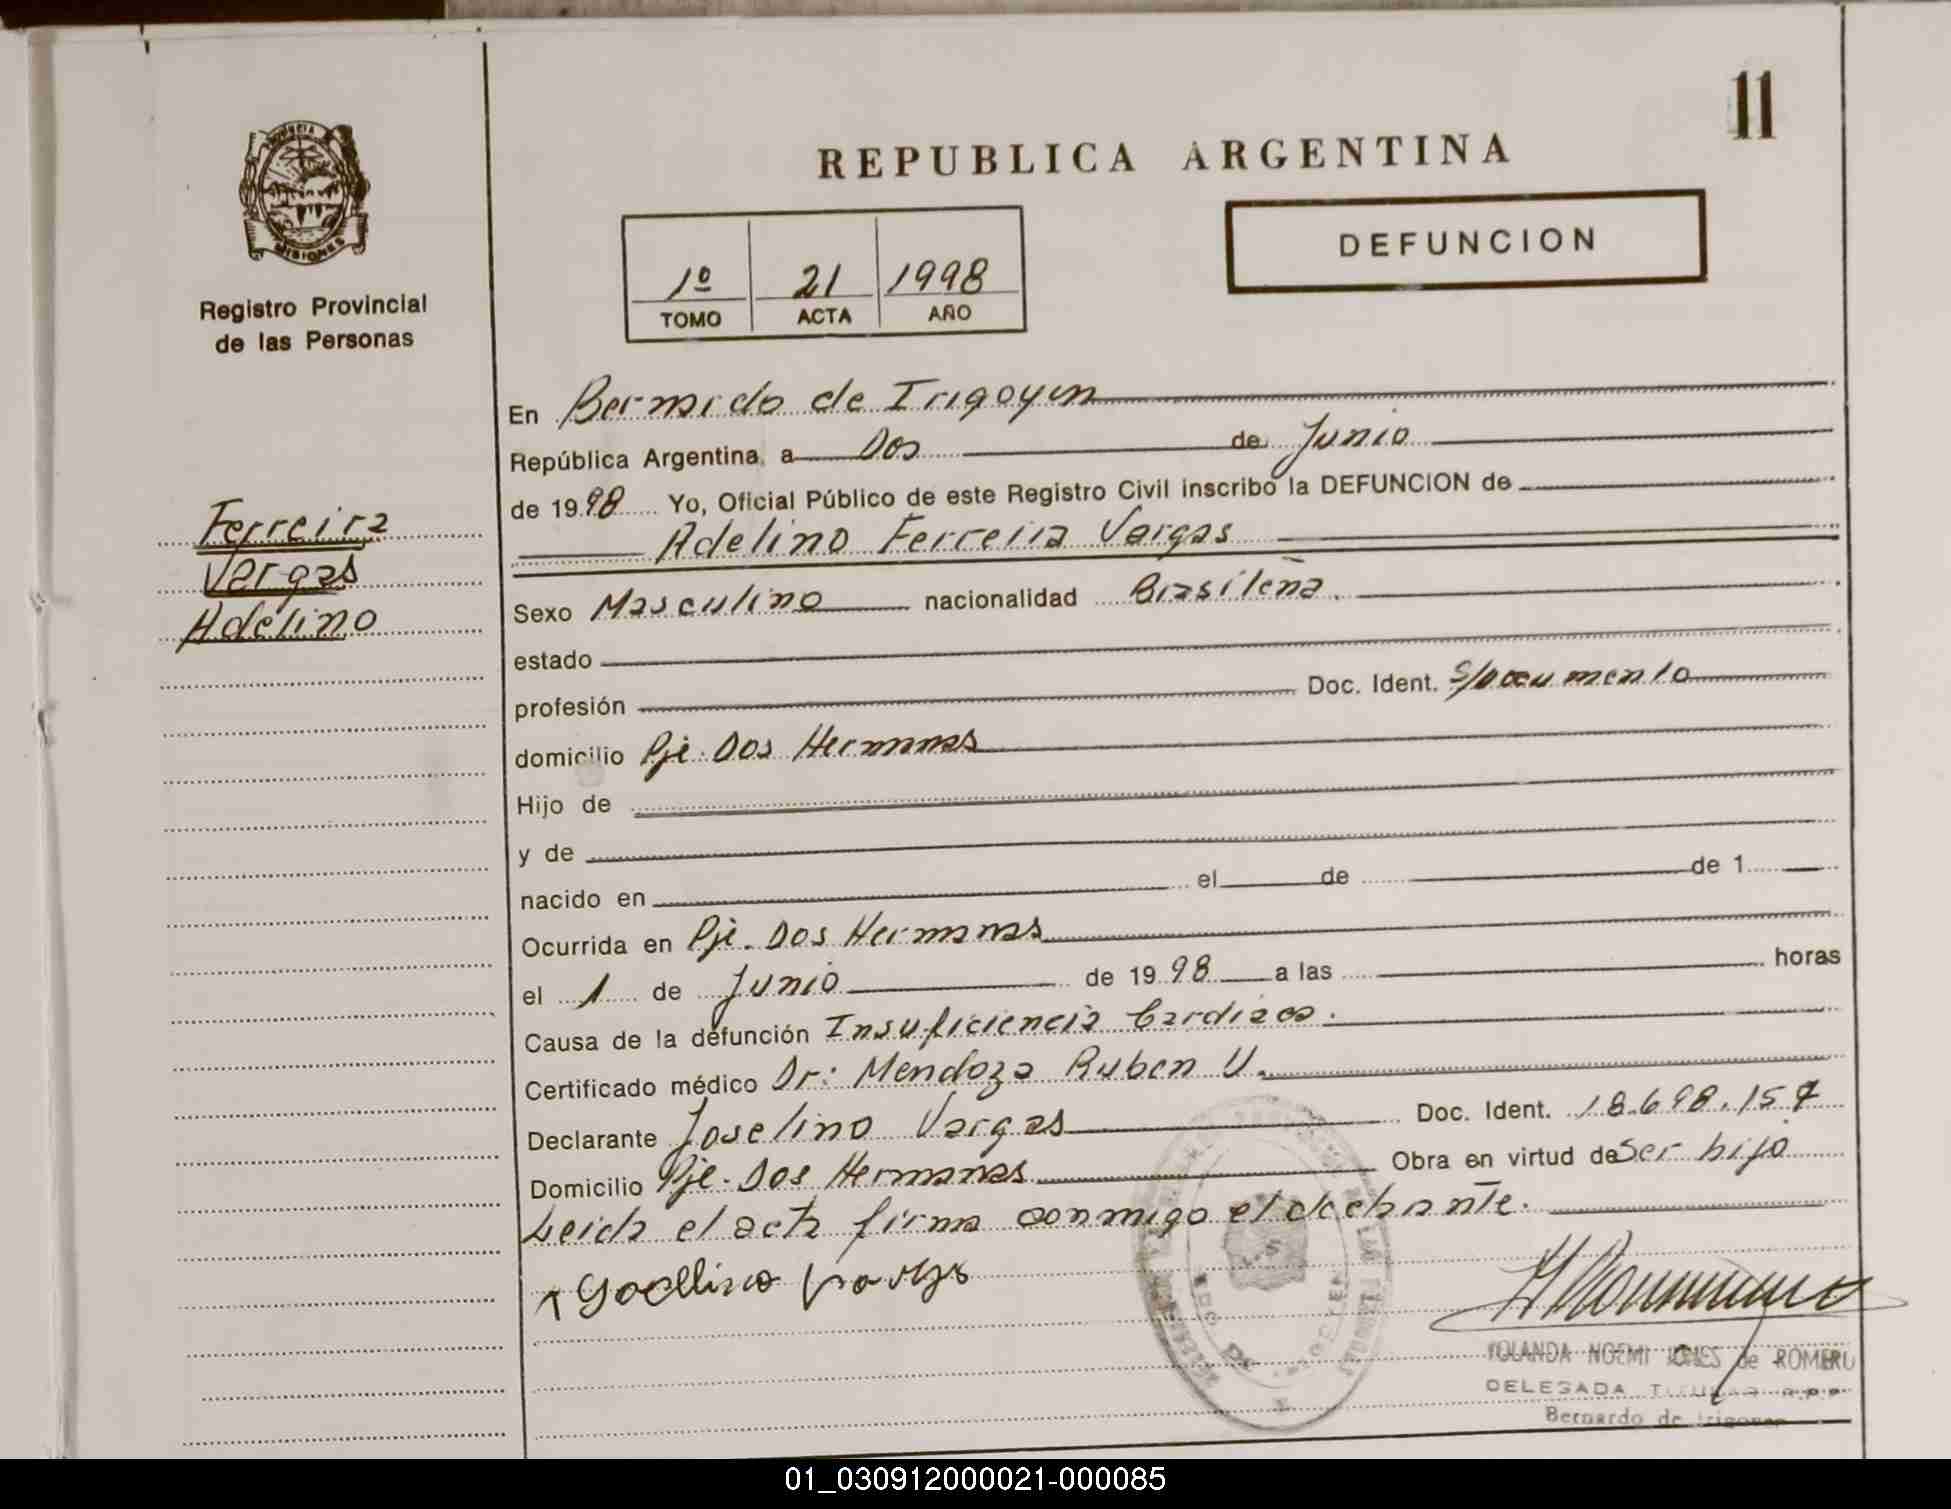 11
REPUBLICA ARGENTINA
DEFUNCION
PROVINCIA
MISIONES
Registro Provincial
de las Personas
1º 21 1998
TOMO ACTA AÑO
Ferreira
Vargas
Adelino
En Bernardo de Irigoyen
República Argentina, a Dos de Junio
de 1998 Yo, Oficial Público de este Registro Civil inscribo la DEFUNCION de
Adelino Ferreira Vargas
Sexo Masculino nacionalidad Brasileña.
estado
profesión Doc. Ident. S/Documento
domicilio Pje. Dos Hermanas
Hijo de
y de
nacido en el de de 1
Ocurrida en Pje. Dos Hermanas
el 1 de Junio de 1998 a las horas
Causa de la defunción Insuficiencia Cardiaca.
Certificado médico Dr: Mendoza Ruben U.
Declarante Joselino Vargas Doc. Ident. 18.698.157
Domicilio Pje. Dos Hermanas Obra en virtud de Ser hijo
Leida el acta firma conmigo el declarante.
YOLANDA NOEMI de ROMERO
DELEGADA TITULAR R.P.P.
Bernardo de Irigoyen
01_030912000021-000085